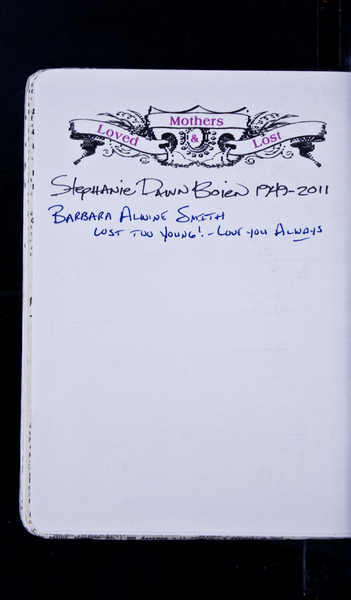 Loved Mothers & Lost
Stephanie Dawn Boien 1949-2011
Barbara Alwine Smith
Lost too young! - Love you Always